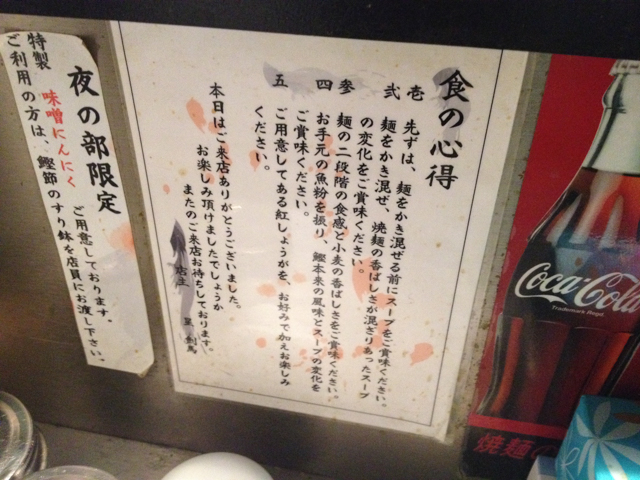 食の心得
壱 先ずは、麺をかき混ぜる前にスープをご賞味ください。
弐 麺をかき混ぜ、焼麺の香ばしさが混ざりあったスープ
の変化をご賞味ください。
参 麺の二段階の食感と小麦の香ばしさをご賞味ください。
四 お手元の魚粉を振り、鰹本来の風味とスープの変化を
ご賞味ください。
五 ご用意してある紅しょうがを、お好みで加えお楽しみ
ください。
本日はご来店ありがとうございました。
お楽しみ頂けましたでしょうか
またのご来店お待ちしております。
店主
夜の部限定
特製 味噌にんにく ご用意しております。
ご利用の方は、鰹節のすり鉢を店員にお渡し下さい。
Coca-Cola
Trademark Regd.
焼麺の